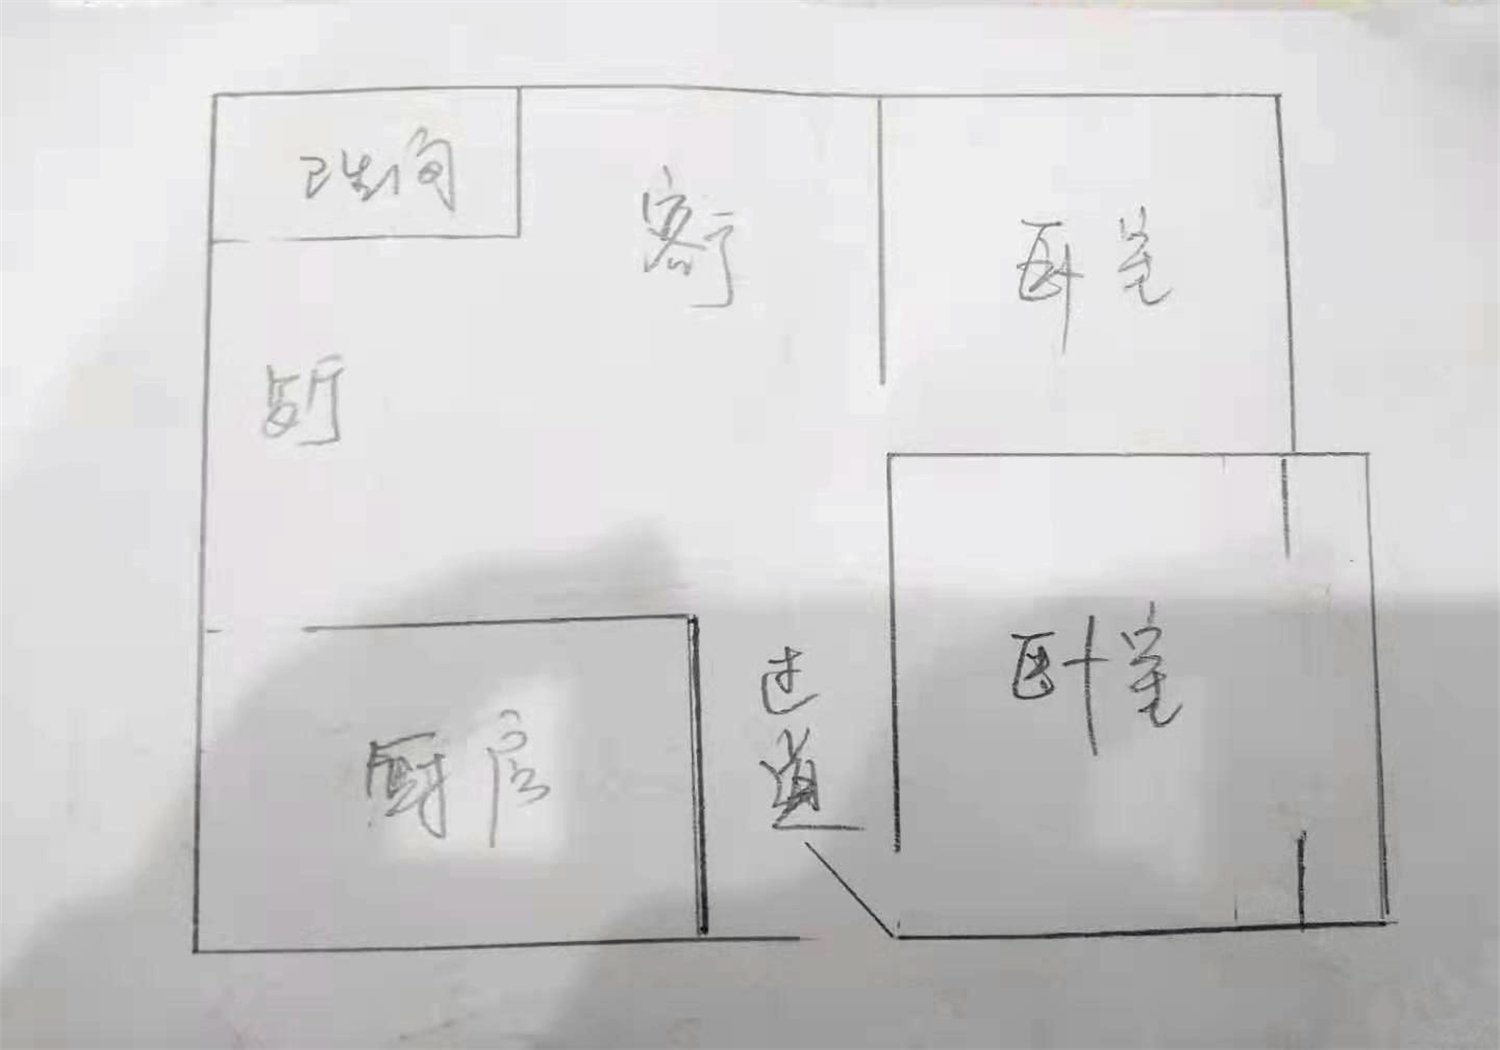 卫生间
客厅
卧室
餐厅
卧室
过道
厨房